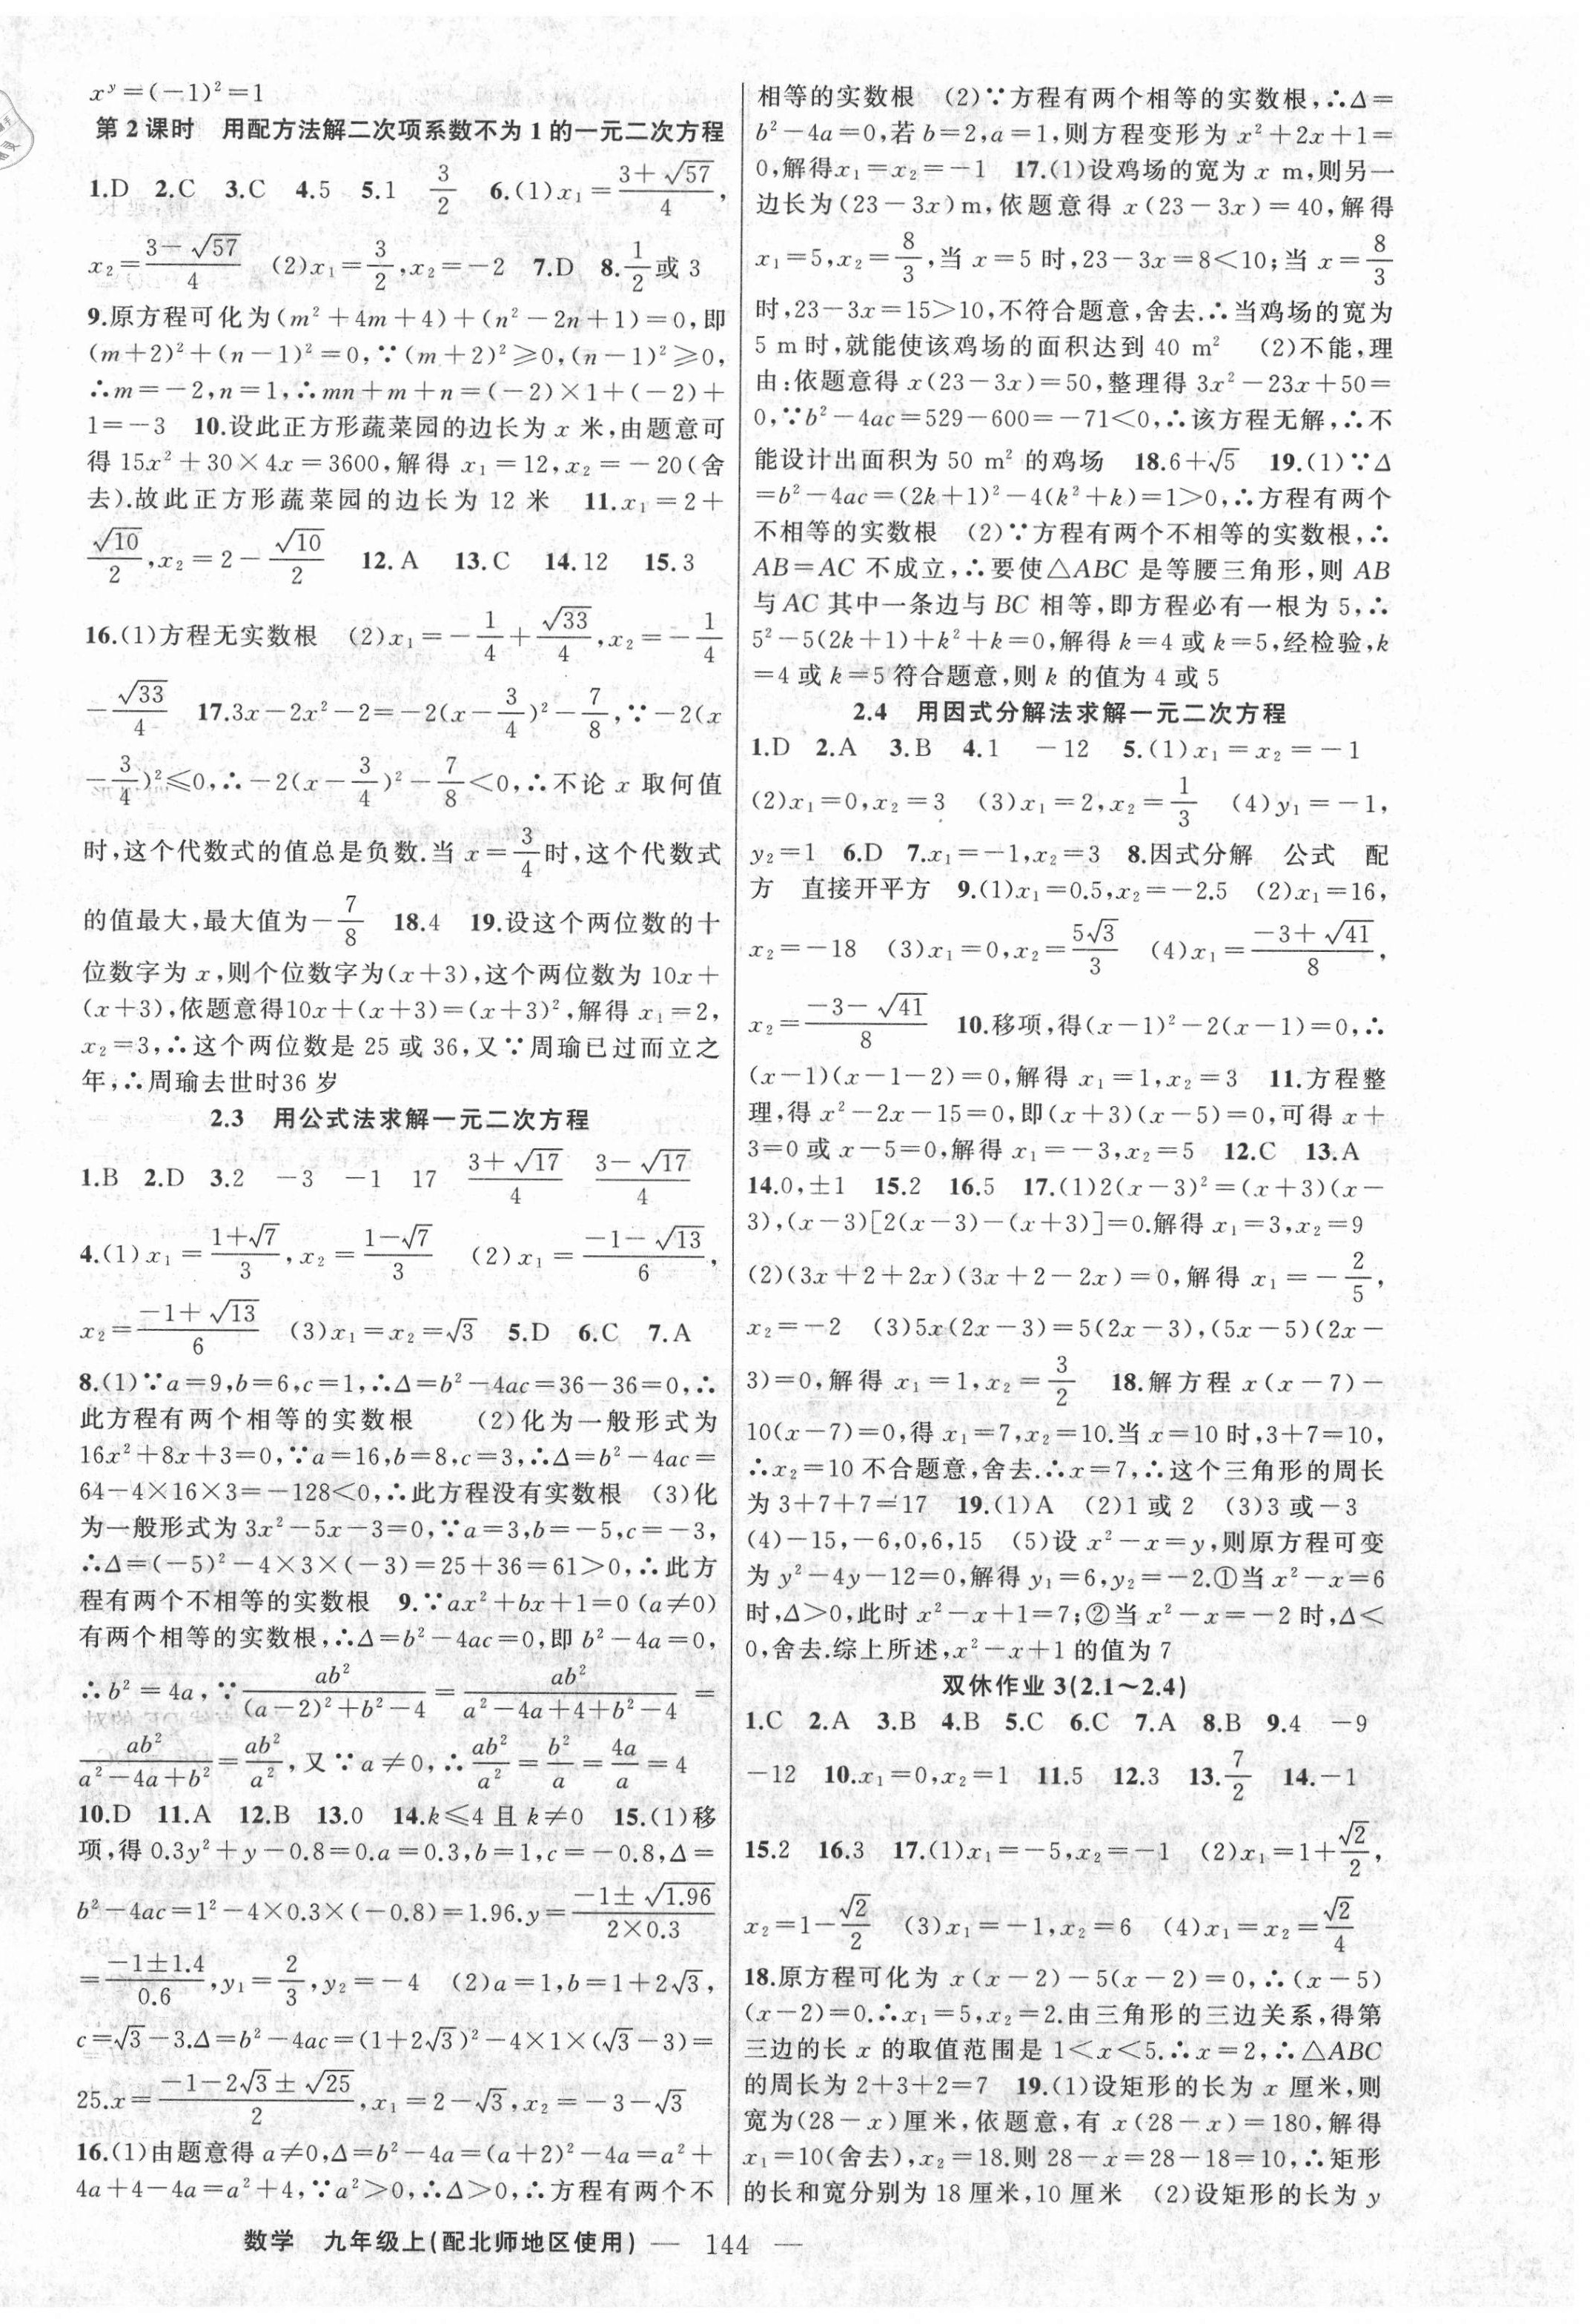 xʸ=(-1)²=1
第 2 课时　用配方法解二次项系数不为 1 的一元二次方程
1.D　2.C　3.C　4.5　5.1　3/2　6.(1)x₁=(3+√57)/4,
x₂=(3-√57)/4　(2)x₁=3/2,x₂=-2　7.D　8.1/2或 3
9.原方程可化为(m²+4m+4)+(n²-2n+1)=0,即
(m+2)²+(n-1)²=0,∵(m+2)²≥0,(n-1)²≥0,
∴m=-2,n=1,∴mn+m+n=(-2)×1+(-2)+
1=-3　10.设此正方形蔬菜园的边长为 x 米,由题意可
得 15x²+30×4x=3600,解得 x₁=12,x₂=-20(舍
去).故此正方形蔬菜园的边长为 12 米　11.x₁=2+
√10/2,x₂=2-√10/2　12.A　13.C　14.12　15.3
16.(1)方程无实数根　(2)x₁=-1/4+√33/4,x₂=-1/4
-√33/4　17.3x-2x²-2=-2(x-3/4)²-7/8,∵-2(x
-3/4)²≤0,∴-2(x-3/4)²-7/8<0,∴不论 x 取何值
时,这个代数式的值总是负数.当 x=3/4时,这个代数式
的值最大,最大值为-7/8　18.4　19.设这个两位数的十
位数字为 x,则个位数字为(x+3),这个两位数为 10x+
(x+3),依题意得10x+(x+3)=(x+3)²,解得 x₁=2,
x₂=3,∴这个两位数是 25 或 36,又∵周瑜已过而立之
年,∴周瑜去世时36 岁
2.3　用公式法求解一元二次方程
1.B　2.D　3.2　-3　-1　17　(3+√17)/4　(3-√17)/4
4.(1)x₁=(1+√7)/3,x₂=(1-√7)/3　(2)x₁=(-1-√13)/6,
x₂=(-1+√13)/6　(3)x₁=x₂=√3　5.D　6.C　7.A
8.(1)∵a=9,b=6,c=1,∴Δ=b²-4ac=36-36=0,∴
此方程有两个相等的实数根　(2)化为一般形式为
16x²+8x+3=0,∵a=16,b=8,c=3,∴Δ=b²-4ac=
64-4×16×3=-128<0,∴此方程没有实数根　(3)化
为一般形式为 3x²-5x-3=0,∵a=3,b=-5,c=-3,
∴Δ=(-5)²-4×3×(-3)=25+36=61>0,∴此方
程有两个不相等的实数根　9.∵ax²+bx+1=0(a≠0)
有两个相等的实数根,∴Δ=b²-4ac=0,即 b²-4a=0,
∴b²=4a,∵ab²/((a-2)²+b²-4)=ab²/(a²-4a+4+b²-4)=
ab²/(a²-4a+b²)=ab²/a²,又∵a≠0,∴ab²/a²=b²/a=4a/a=4
10.D　11.A　12.B　13.0　14.k≤4 且 k≠0　15.(1)移
项,得 0.3y²+y-0.8=0.a=0.3,b=1,c=-0.8,Δ=
b²-4ac=1²-4×0.3×(-0.8)=1.96.y=(-1±√1.96)/(2×0.3)
=(-1±1.4)/0.6,y₁=2/3,y₂=-4　(2)a=1,b=1+2√3,
c=√3-3.Δ=b²-4ac=(1+2√3)²-4×1×(√3-3)=
25.x=(-1-2√3±√25)/2,x₁=2-√3,x₂=-3-√3
16.(1)由题意得 a≠0,Δ=b²-4a=(a+2)²-4a=a²+
4a+4-4a=a²+4,∵a²>0,∴Δ>0,∴方程有两个不
相等的实数根　(2)∵方程有两个相等的实数根,∴Δ=
b²-4a=0,若 b=2,a=1,则方程变形为 x²+2x+1=
0,解得x₁=x₂=-1　17.(1)设鸡场的宽为 x m,则另一
边长为(23-3x)m,依题意得 x(23-3x)=40,解得
x₁=5,x₂=8/3,当 x=5 时,23-3x=8<10;当 x=8/3
时,23-3x=15>10,不符合题意,舍去.∴当鸡场的宽为
5 m 时,就能使该鸡场的面积达到 40 m²　(2)不能,理
由:依题意得 x(23-3x)=50,整理得 3x²-23x+50=
0,∵b²-4ac=529-600=-71<0,∴该方程无解,∴不
能设计出面积为 50 m² 的鸡场　18.6+√5　19.(1)∵Δ
=b²-4ac=(2k+1)²-4(k²+k)=1>0,∴方程有两个
不相等的实数根　(2)∵方程有两个不相等的实数根,∴
AB=AC 不成立,∴要使△ABC 是等腰三角形,则 AB
与 AC 其中一条边与 BC 相等,即方程必有一根为 5,∴
5²-5(2k+1)+k²+k=0,解得 k=4 或 k=5,经检验,k
=4 或 k=5 符合题意,则 k 的值为 4 或 5
2.4　用因式分解法求解一元二次方程
1.D　2.A　3.B　4.1　-12　5.(1)x₁=x₂=-1
(2)x₁=0,x₂=3　(3)x₁=2,x₂=1/3　(4)y₁=-1,
y₂=1　6.D　7.x₁=-1,x₂=3　8.因式分解　公式　配
方　直接开平方　9.(1)x₁=0.5,x₂=-2.5　(2)x₁=16,
x₂=-18　(3)x₁=0,x₂=5√3/3　(4)x₁=(-3+√41)/8,
x₂=(-3-√41)/8　10.移项,得(x-1)²-2(x-1)=0,∴
(x-1)(x-1-2)=0,解得 x₁=1,x₂=3　11.方程整
理,得 x²-2x-15=0,即(x+3)(x-5)=0,可得 x+
3=0 或 x-5=0,解得 x₁=-3,x₂=5　12.C　13.A
14.0,±1　15.2　16.5　17.(1)2(x-3)²=(x+3)(x-
3),(x-3)[2(x-3)-(x+3)]=0.解得 x₁=3,x₂=9
(2)(3x+2+2x)(3x+2-2x)=0,解得 x₁=-2/5,
x₂=-2　(3)5x(2x-3)=5(2x-3),(5x-5)(2x-
3)=0,解得 x₁=1,x₂=3/2　18.解方程 x(x-7)-
10(x-7)=0,得 x₁=7,x₂=10.当 x=10 时,3+7=10,
∴x₂=10 不合题意,舍去.∴x=7,∴这个三角形的周长
为 3+7+7=17　19.(1)A　(2)1 或 2　(3)3 或-3
(4)-15,-6,0,6,15　(5)设 x²-x=y,则原方程可变
为 y²-4y-12=0,解得 y₁=6,y₂=-2.①当 x²-x=6
时,Δ>0,此时 x²-x+1=7;②当 x²-x=-2 时,Δ<
0,舍去.综上所述,x²-x+1 的值为 7
双休作业 3(2.1～2.4)
1.C　2.A　3.B　4.B　5.C　6.C　7.A　8.B　9.4　-9
-12　10.x₁=0,x₂=1　11.5　12.3　13.7/2　14.-1
15.2　16.3　17.(1)x₁=-5,x₂=-1　(2)x₁=1+√2/2,
x₂=1-√2/2　(3)x₁=-1,x₂=6　(4)x₁=x₂=√2/4
18.原方程可化为 x(x-2)-5(x-2)=0,∴(x-5)
(x-2)=0.∴x₁=5,x₂=2.由三角形的三边关系,得第
三边的长 x 的取值范围是 1<x<5.∴x=2,∴△ABC
的周长为 2+3+2=7　19.(1)设矩形的长为 x 厘米,则
宽为(28-x)厘米,依题意,有 x(28-x)=180,解得
x₁=10(舍去),x₂=18.则 28-x=28-18=10,∴矩形
的长和宽分别为 18 厘米,10 厘米　(2)设矩形的长为 y
数学　九年级上(配北师地区使用)— 144 —